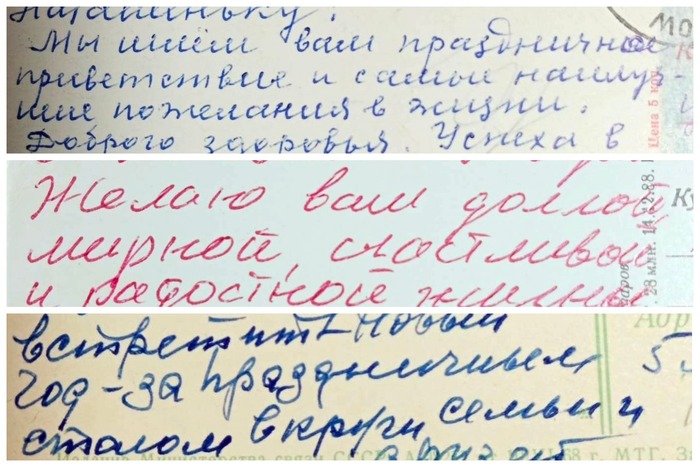 Наташеньку!
МО
Мы шлём вам праздничное
приветствие и самые наилуч-
шие пожелания в жизни.
Доброго здоровья. Успеха в
Цена 5 коп.
Желаю вам долгой,
мирной, счастливой
и радостной жизни
28 млн. 14.12.88.
Ку
встретить Новый
год - за праздничным
столом в кругу семьи и
Адр
Издание Министерства связи СССР 68 г. МТГ.